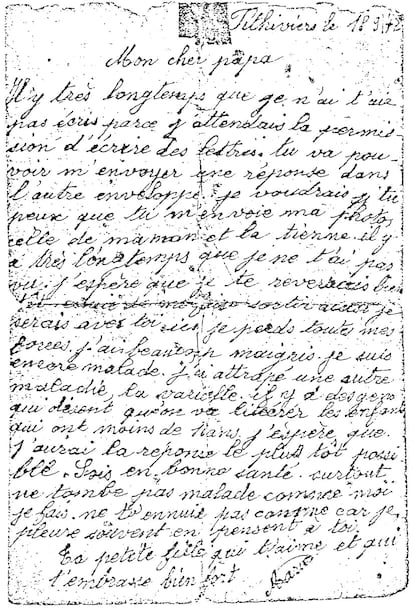 Pithiviers le 18 9 42
Mon cher papa
Il y très longtemps que je n'ai t'aie
pas écris parce j'attendais la permis-
sion d'écrire des lettres. tu va pou-
voir m'envoyer une réponse dans
l'autre enveloppe. je voudrais si tu
peux que tu m'envoie ma photo
celle de maman et la tienne il y
a très longtemps que je ne t'ai pas
vu. j'espère que je te reverrais bien
sortir aussi je
serais avec toi ici je perds toutes mes
forces, j'ai beaucoup maigris je suis
encore malade. j'ai attrapé une autre
maladie, la varicelle. il y a des gens
qui disent qu'on va libérer les enfants
qui ont moins de ans, j'espère que
j'aurai la reponse le plus tôt possi
ble. Sois en bonne santé surtout
ne tombe pas malade comme moi
je fais. ne te ennuie pas comme car je
pleure souvent en pensent à toi.
Ta petite fille qui t'aime et qui
t'embrasse bien fort